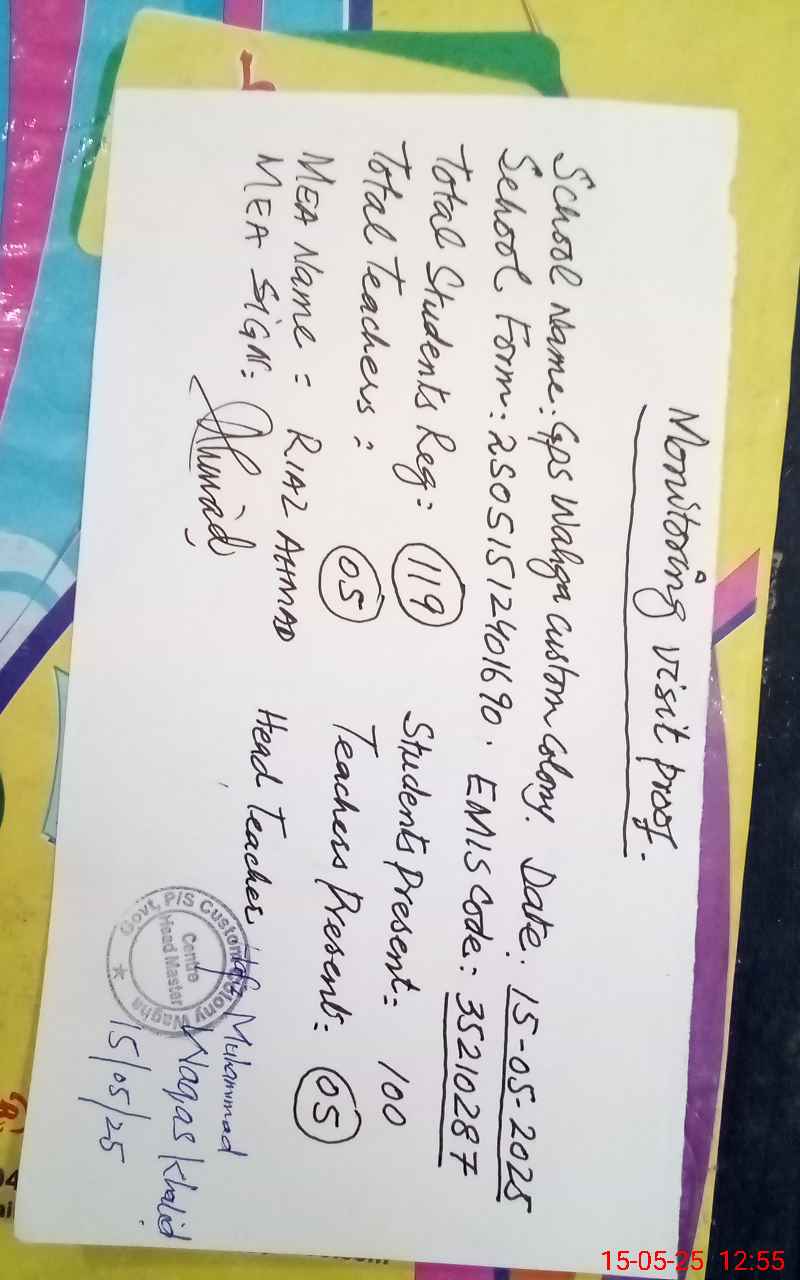 Monitoring visit proof.
School Name: GPS Wahga Custom Colony. Date: 15-05-2025
School Form: 25051512401690. EMIS Code: 35210287
Total Students Reg: 119 Students Present: 100
Total Teachers: 05 Teachers Present: 05
MEA Name: RIAZ AHMAD Head Teacher:
MEA SIGN: Ahmad
Muhammad
Waqas Khalid
15/05/25
Govt. P/S Custom Colony Wagha
Centre
Head Master
15-05-25 12:55